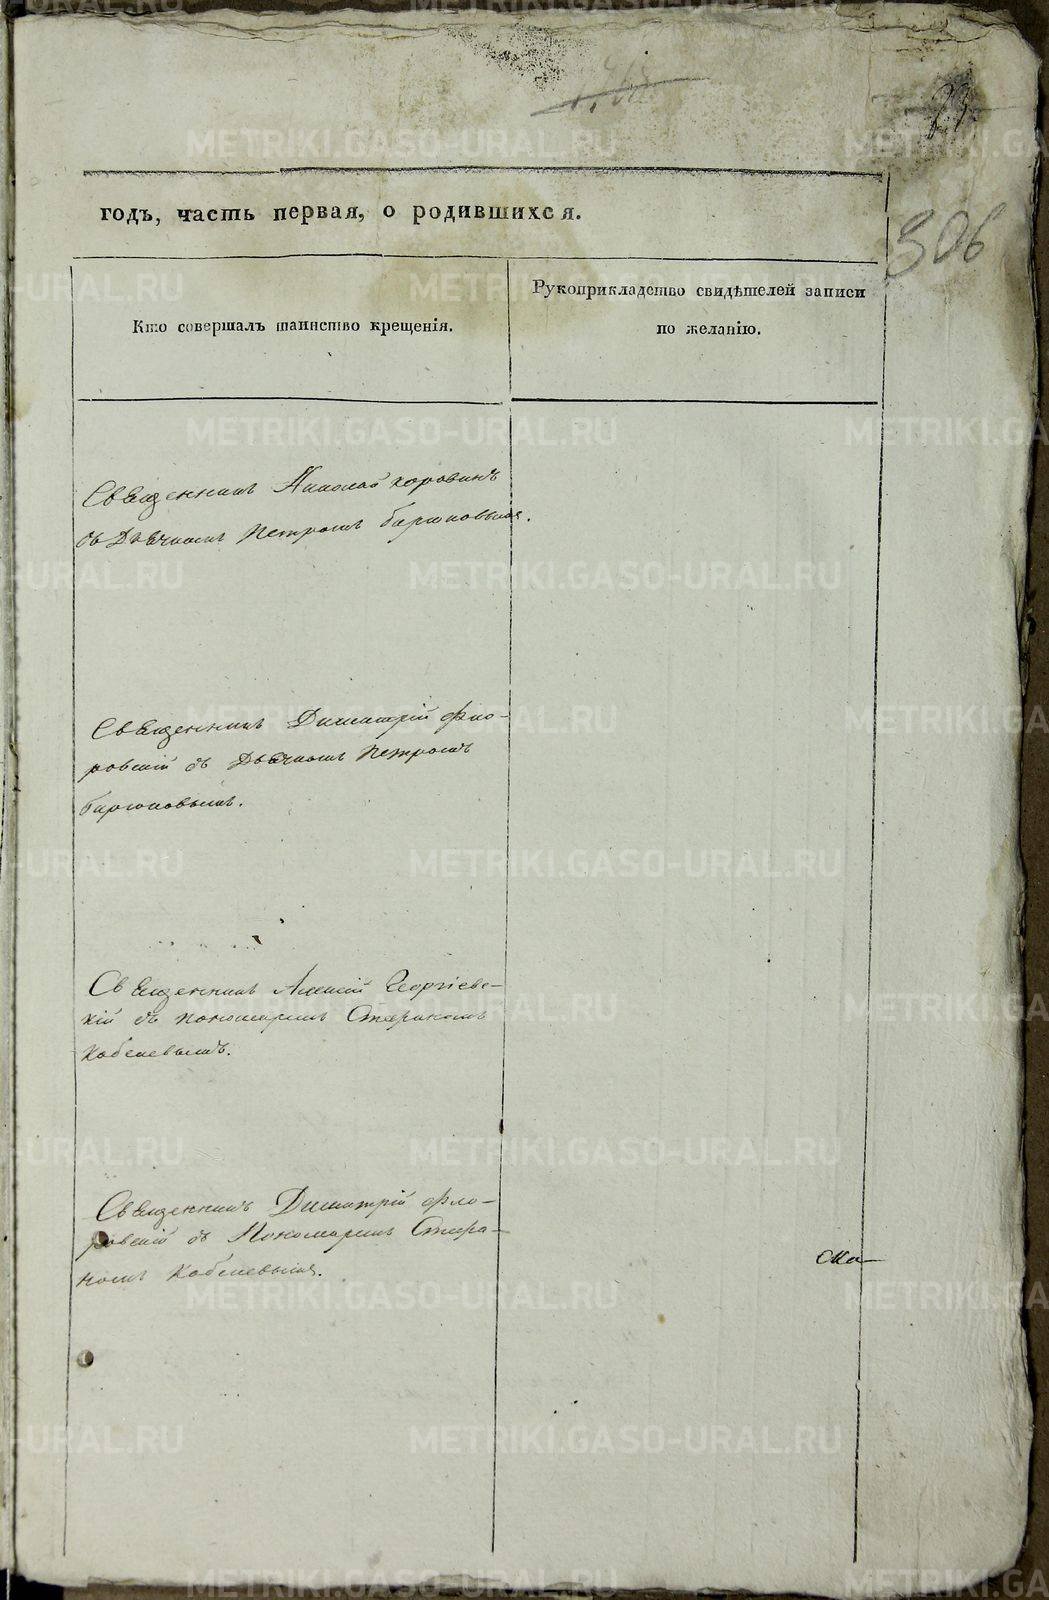 23
306
годъ, часть первая, о родившихся.
Кто совершалъ таинство крещенія.
Рукоприкладство свидѣтелей записи
по желанію.
Священникъ Николай Коровинъ
съ Дьячкомъ Петромъ
Священникъ Димитрій Фло-
ровскій съ Дьячкомъ Петромъ
Священникъ Алексій Георгіевс-
кій съ пономаремъ Стефаномъ
Кобелевымъ.
Священникъ Димитрій Фло-
ровскій съ Пономаремъ Стефа-
номъ Кобелевымъ.
METRIKI.GASO-URAL.RU